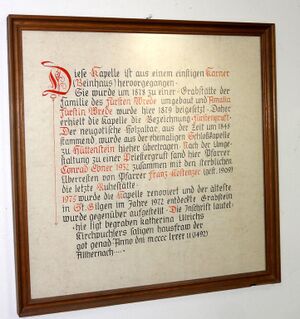 Diese Kapelle ist aus einem einstigen Karner
(Beinhaus) hervorgegangen.
Sie wurde um 1878 zu einer Grabstätte der
Familie des Fürsten Wrede umgebaut und Amalia
Fürstin Wrede wurde hier 1879 beigesetzt. Daher
erhielt die Kapelle die Bezeichnung Fürstengruft.
Der neugotische Holzaltar, aus der Zeit um 1845
stammend, wurde aus der ehemaligen Schloßkapelle
zu Hüttenstein hieher übertragen. Nach der Umge
staltung zu einer Priestergruft fand hier Pfarrer
Conrad Ebner 1952 zusammen mit den sterblichen
Überresten von Pfarrer Franz Kostenzer (gest. 1909)
die letzte Ruhestätte.
1975 wurde die Kapelle renoviert und der älteste
in St. Gilgen im Jahre 1972 entdeckte Grabstein
wurde gegenüber aufgestellt. Die Inschrift lautet:
hie ligt begraben katherina Ulrichs
Kirchwuchlers säligen hausfraw der
got genad. Anno dni mcccc lxxxx ii (1492)